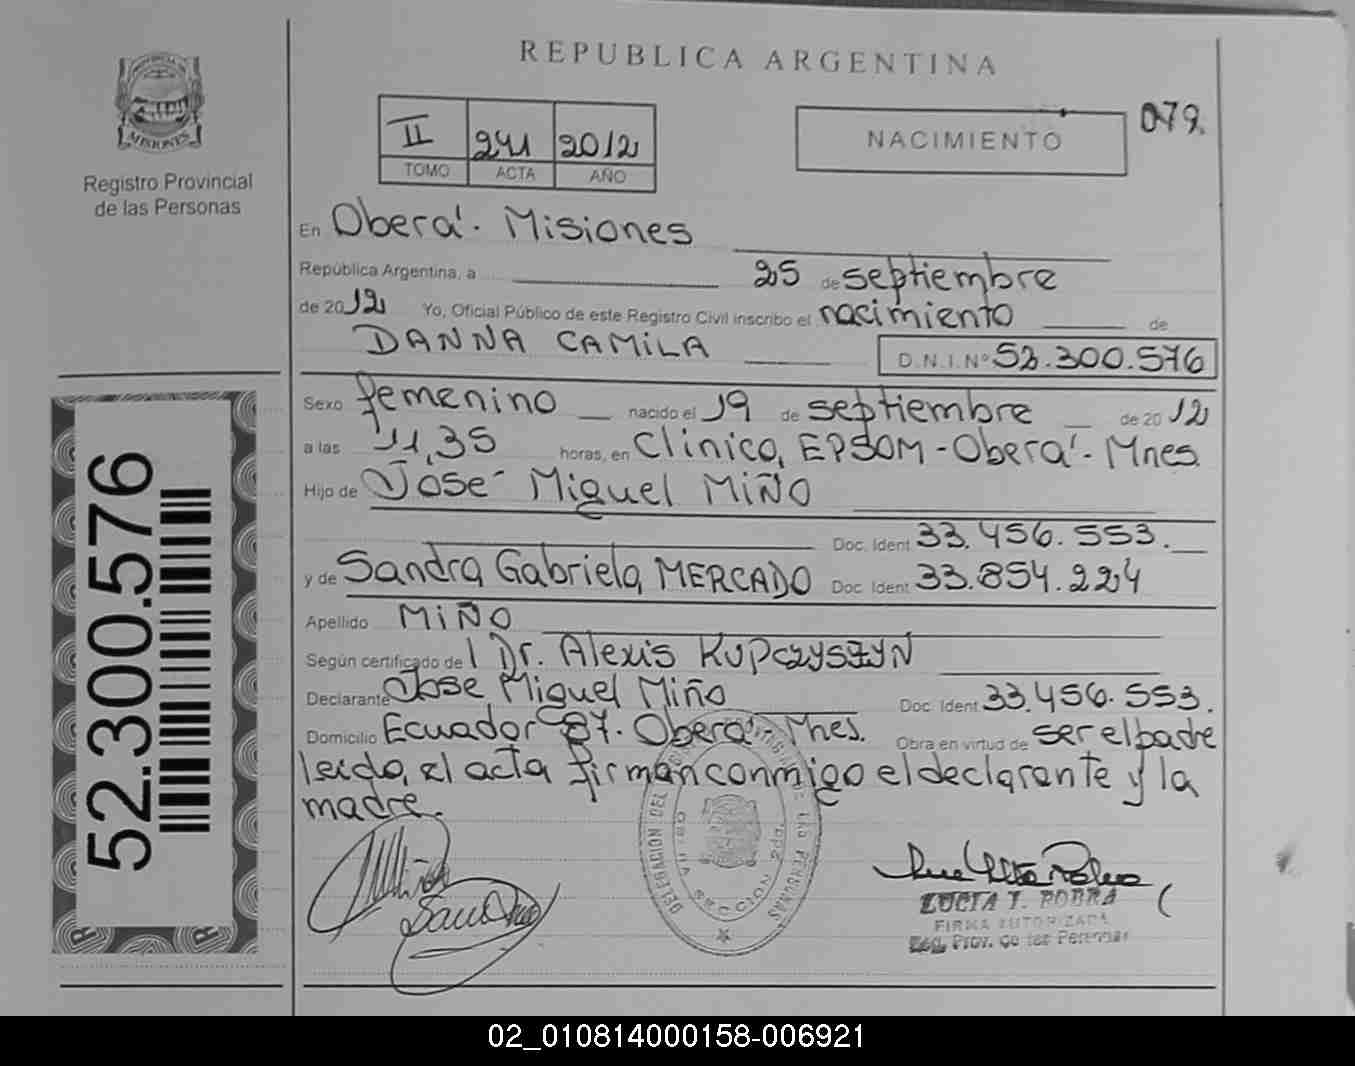 REPUBLICA ARGENTINA
MISIONES
Registro Provincial
de las Personas
II 241 2012
TOMO ACTA AÑO
NACIMIENTO
079.
En Oberá. Misiones
República Argentina, a 25 de septiembre
de 2012 Yo, Oficial Público de este Registro Civil inscribo el nacimiento de
DANNA CAMILA D.N.I.Nº 52.300.576
Sexo femenino nacido el 19 de septiembre de 2012
a las 11,35 horas, en Clinica, EPSOM - Oberá. Mnes.
Hijo de José Miguel MIÑO
Doc. Ident 33.456.553.
y de Sandra Gabriela, MERCADO Doc. Ident 33.854.224
Apellido MIÑO
Según certificado de Dr. Alexis KUPCZYSZYN
Declarante Jose Miguel Miño Doc. Ident 33.456.553.
Domicilio Ecuador 87. Oberá. Mnes. Obra en virtud de ser el padre
leida, el acta firman conmigo el declarante y la
madre.
52.300.576
DELEGACION DEL
LAS PERSONAS
OBERA SECCION 2da.
LUCIA I. ROBRA
FIRMA AUTORIZADA
Reg. Prov. de las Personas
02_010814000158-006921